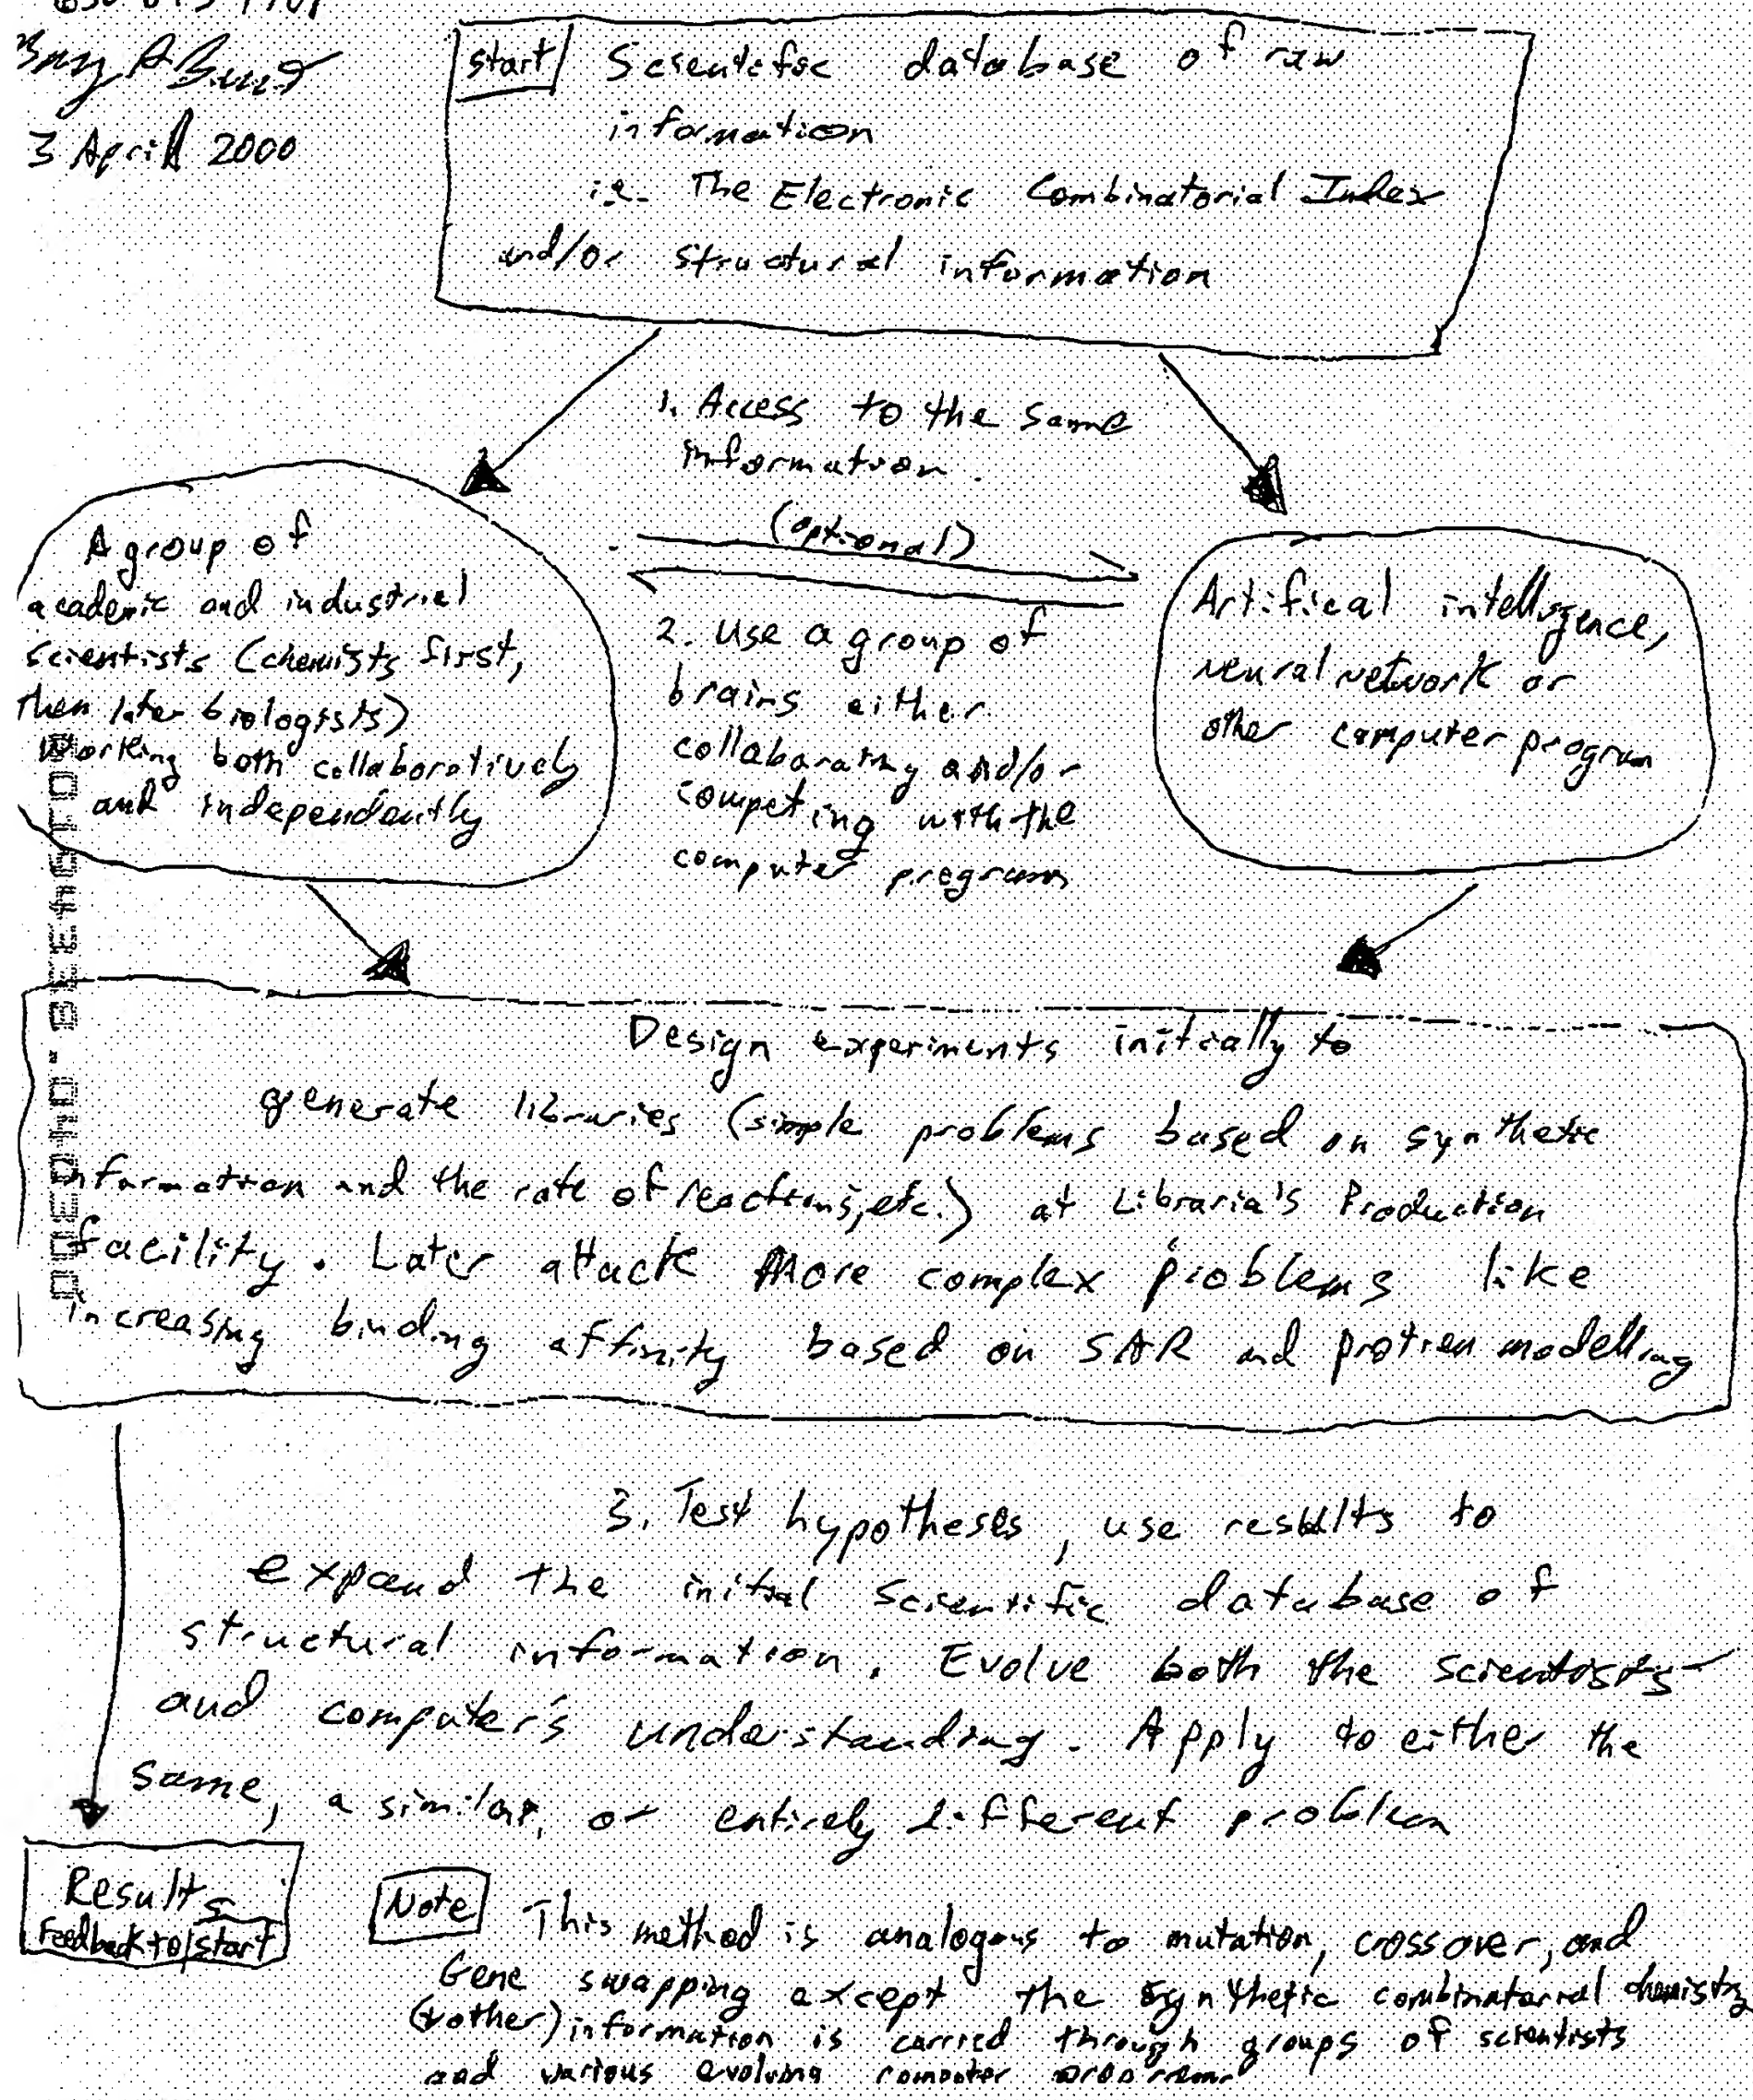 3 April 2000
start Scientific database of raw
information
i.e. The Electronic Combinatorial Index
and/or structural information
1. Access to the same
information
(optional)
A group of
academic and industrial
scientists (chemists first,
then later biologists)
working both collaboratively
and independently
2. Use a group of
brains either
collaborating and/or
competing with the
computer programs
Artifical intelligence,
neural network or
other computer program
Design experiments initially to
generate libraries (simple problems based on synthetic
information and the rate of reactions, etc.) at Libraria's Production
facility. Later attack more complex problems like
increasing binding affinity based on SAR and protien modelling
3. Test hypotheses, use results to
expand the initial scientific database of
structural information. Evolve both the scientists
and computer's understanding. Apply to either the
same, a similar, or entirely different problem
Results
Feedback to start
Note This method is analogous to mutation, crossover, and
Gene swapping except the synthetic combinatorial chemistry
(+other) information is carried through groups of scientists
and various evolving computer programs